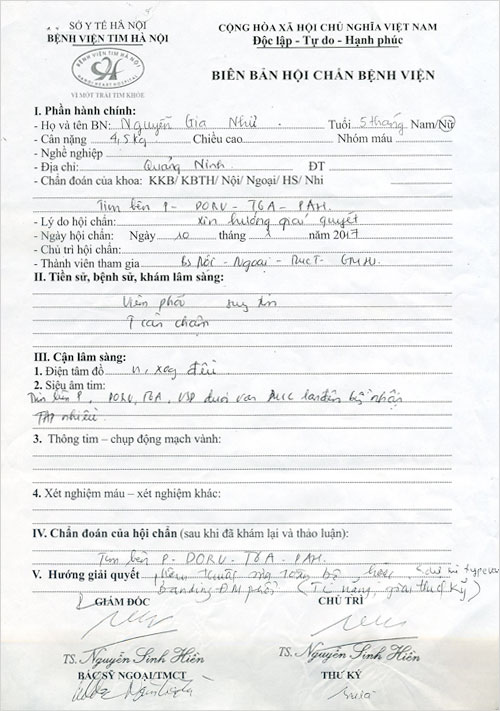 SỞ Y TẾ HÀ NỘI
BỆNH VIỆN TIM HÀ NỘI
CỘNG HÒA XÃ HỘI CHỦ NGHĨA VIỆT NAM
Độc lập - Tự do - Hạnh phúc
BỆNH VIỆN TIM HÀ NỘI
HANOI HEART HOSPITAL
VÌ MỘT TRÁI TIM KHỎE
BIÊN BẢN HỘI CHẨN BỆNH VIỆN
I. Phần hành chính:
- Họ và tên BN: Nguyễn Gia Như Tuổi 5 tháng Nam/Nữ
- Cân nặng 4,5kg Chiều cao Nhóm máu
- Nghề nghiệp
- Địa chỉ: Quảng Ninh ĐT
- Chẩn đoán của khoa: KKB/ KBTH/ Nội/ Ngoại/ HS/ Nhi
Tim bên P - DORV - TGA - PAH.
- Lý do hội chẩn: xin hướng giải quyết
- Ngày hội chẩn: Ngày 10 tháng 1 năm 2017
- Chủ trì hội chẩn:
- Thành viên tham gia Bs Nội - Ngoại -
II. Tiền sử, bệnh sử, khám lâm sàng:
Viêm phổi suy tim
cân chậm
III. Cận lâm sàng:
1. Điện tâm đồ xoang đều
2. Siêu âm tim:
Tim bên P, DORV, TGA, VSD dưới van ĐMC
nhiều
3. Thông tim – chụp động mạch vành:
4. Xét nghiệm máu – xét nghiệm khác:
IV. Chẩn đoán của hội chẩn (sau khi đã khám lại và thảo luận):
Tim bên P - DORV - TGA - PAH.
V. Hướng giải quyết
banding ĐM phổi (TL nặng, giải thích kỹ)
GIÁM ĐỐC CHỦ TRÌ
TS. Nguyễn Sinh Hiền TS. Nguyễn Sinh Hiền
BÁC SỸ NGOẠI/TMCT THƯ KÝ